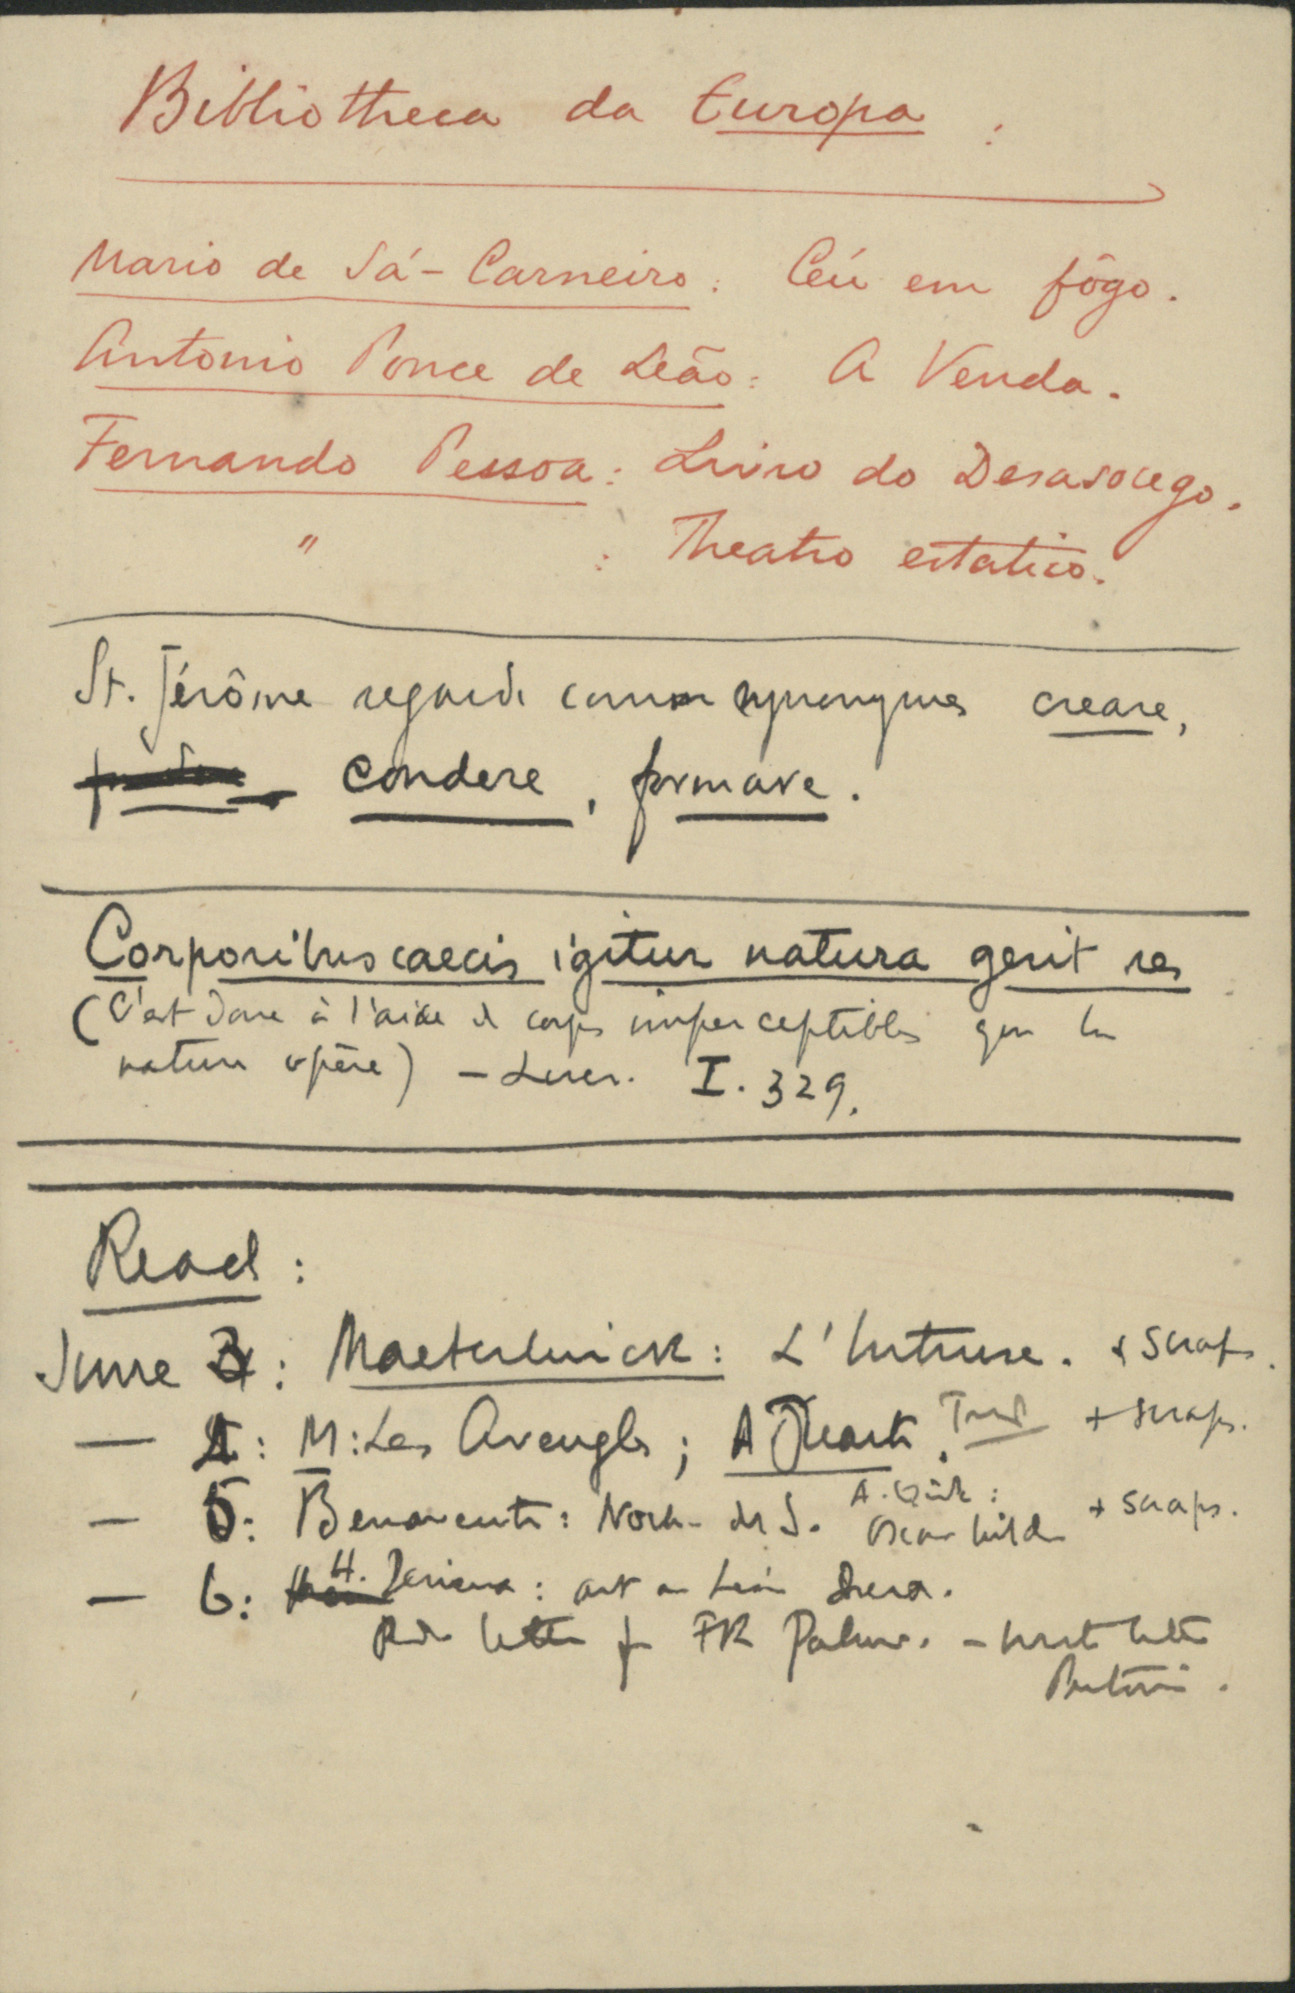 Bibliotheca da Europa :
Mario de Sá-Carneiro: Céu em fôgo.
Antonio Ponce de Leão: A Venda.
Fernando Pessoa: Livro do Desasocego.
" : Theatro estatico.
St. Jérôme regarde comme synonymes creare,
condere, formare.
Corporibus caecis igitur natura gerit res
(C'est donc à l'aide de corps imperceptibles que la
nature opère) – Lucr. I. 329.
Read:
June 3: Maeterlinck: L'Intruse. + scraps.
— 4: M: Les Aveugles; + scraps.
— 5: Benavente: Noche del S. Oscar Wilde + scraps.
— 6: H.
letter FR